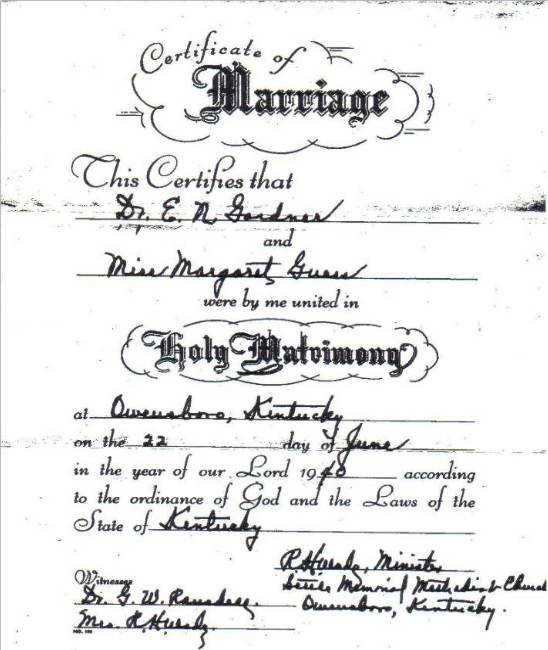 Certificate of
Marriage
This Certifies that
Dr. E. N. Gardner
and
Miss Margaret Guess
were by me united in
Holy Matrimony
at Owensboro, Kentucky
on the 22 day of June
in the year of our Lord 1940 according
to the ordinance of God and the Laws of the
State of Kentucky
Minister
Settle Memorial Methodist Church
Owensboro, Kentucky.
Witnesses
Dr. G. W.
Mrs. R.
NO.